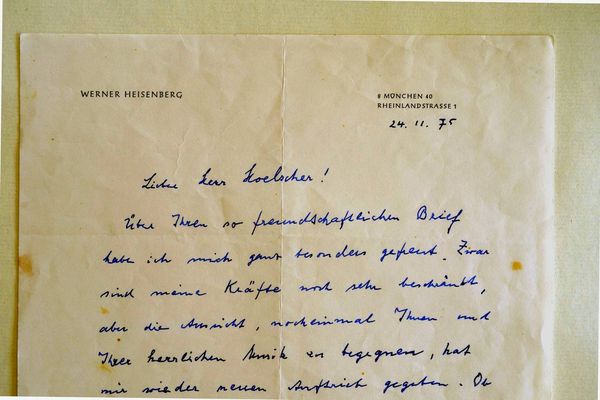 WERNER HEISENBERG
8 MÜNCHEN 40
RHEINLANDSTRASSE 1
24. 11. 75
Lieber Herr Hoelscher!
Über Ihren so freundschaftlichen Brief
habe ich mich ganz besonders gefreut. Zwar
sind meine Kräfte noch sehr beschränkt,
aber die Aussicht, nocheinmal Ihnen und
Ihrer herrlichen Musik zu begegnen, hat
mir wieder neuen Auftrieb gegeben. Ob